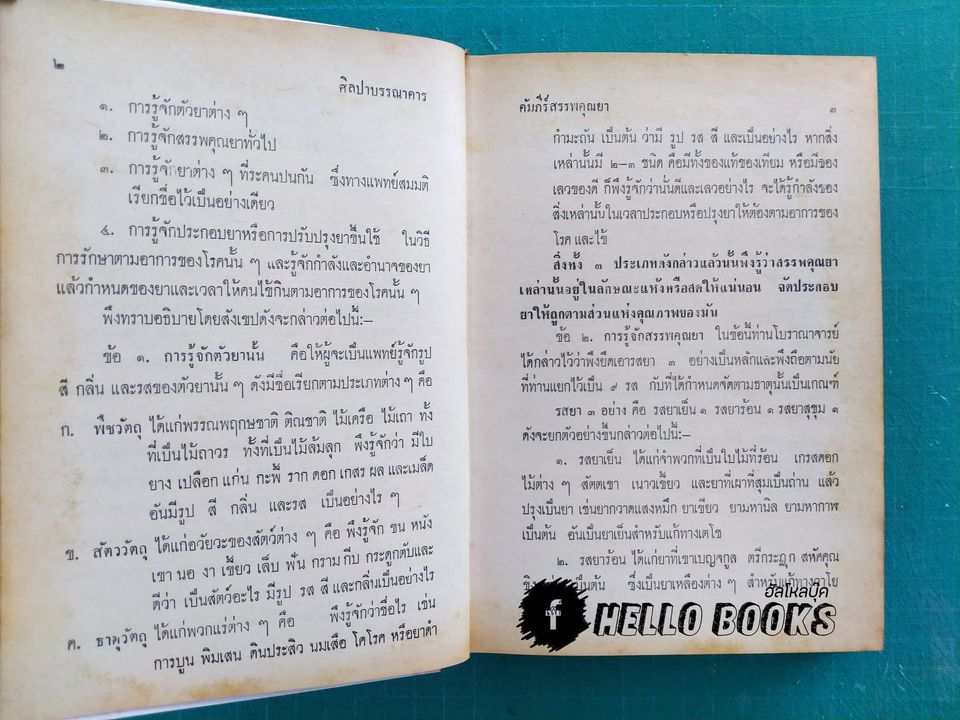 ๒
ศิลปาบรรณาคาร
๑. การรู้จักตัวยาต่าง ๆ
๒. การรู้จักสรรพคุณยาทั่วไป
๓. การรู้จักยาต่าง ๆ ที่ระคนปนกัน ซึ่งทางแพทย์สมมติ
เรียกชื่อไว้เป็นอย่างเดียว
๔. การรู้จักประกอบยาหรือการปรับปรุงยาขึ้นใช้ ในวิธี
การรักษาตามอาการของโรคนั้น ๆ และรู้จักกำลังและอำนาจของยา
แล้วกำหนดของยาและเวลาให้คนไข้กินตามอาการของโรคนั้น ๆ
พึงทราบอธิบายโดยสังเขปดังจะกล่าวต่อไปนี้:–
ข้อ ๑. การรู้จักตัวยานั้น คือให้ผู้จะเป็นแพทย์รู้จักรูป
สี กลิ่น และรสของตัวยานั้น ๆ ดังมีชื่อเรียกตามประเภทต่าง ๆ คือ
ก. พืชวัตถุ ได้แก่พรรณพฤกษชาติ ติณชาติ ไม้เครือ ไม้เถา ทั้ง
ที่เป็นไม้ถาวร ทั้งที่เป็นไม้ล้มลุก พึงรู้จักว่า มีใบ
ยาง เปลือก แก่น กะพี้ ราก ดอก เกสร ผล และเมล็ด
อันมีรูป สี กลิ่น และรส เป็นอย่างไร ๆ
ข. สัตววัตถุ ได้แก่อวัยวะของสัตว์ต่าง ๆ คือ พึงรู้จัก ขน หนัง
เขา นอ งา เขี้ยว เล็บ ฟัน กราม กีบ กระดูกตับและ
ดีว่า เป็นสัตว์อะไร มีรูป รส สี และกลิ่นเป็นอย่างไร
ค. ธาตุวัตถุ ได้แก่พวกแร่ต่าง ๆ คือ พึงรู้จักว่าชื่อไร เช่น
การบูน พิมเสน ดินประสิว นมเสือ โคโรค หรือยาดำ
คัมภีร์สรรพคุณยา ๓
กำมะถัน เป็นต้น ว่ามี รูป รส สี และเป็นอย่างไร หากสิ่ง
เหล่านั้นมี ๒–๓ ชนิด คือมีทั้งของแท้ของเทียม หรือมีของ
เลวของดี ก็พึงรู้จักว่านั่นดีและเลวอย่างไร จะได้รู้กำลังของ
สิ่งเหล่านั้นในเวลาประกอบหรือปรุงยาให้ต้องตามอาการของ
โรค และไข้
สิ่งทั้ง ๓ ประเภทดังกล่าวแล้วนั้นพึงรู้ว่าสรรพคุณยา
เหล่านั้นอยู่ในลักษณะแห้งหรือสดให้แน่นอน จัดประกอบ
ยาให้ถูกตามส่วนแห่งคุณภาพของมัน
ข้อ ๒. การรู้จักสรรพคุณยา ในข้อนี้ท่านโบราณาจารย์
ได้กล่าวไว้ว่าพึงยึดเอารสยา ๓ อย่างเป็นหลักและพึงถือตามนัย
ที่ท่านแยกไว้เป็น ๙ รส กับที่ได้กำหนดจัดตามธาตุนั้นเป็นเกณฑ์
รสยา ๓ อย่าง คือ รสยาเย็น ๑ รสยาร้อน ๑ รสยาสุขุม ๑
ดังจะยกตัวอย่างขึ้นกล่าวต่อไปนี้:–
๑. รสยาเย็น ได้แก่จำพวกที่เป็นใบไม้ที่ร้อน เกรสดอก
ไม้ต่าง ๆ สัตตเขา เนาวเขี้ยว และยาที่เผาที่สุมเป็นถ่าน แล้ว
ปรุงเป็นยา เช่นยากวาดแสงหมึก ยาเขียว ยามหานิล ยามหากาฬ
เป็นต้น อันเป็นยาเย็นสำหรับแก้ทางเตโช
๒. รสยาร้อน ได้แก่ยาที่เข้าเบญจกูล ตรีกระฏุก สหัคคุณ
ขิง เป็นต้น ซึ่งเป็นยาเหลืองต่าง ๆ สำหรับแก้ทางวาโย
ฮัลโหลบุ๊ค
f HELLO BOOKS